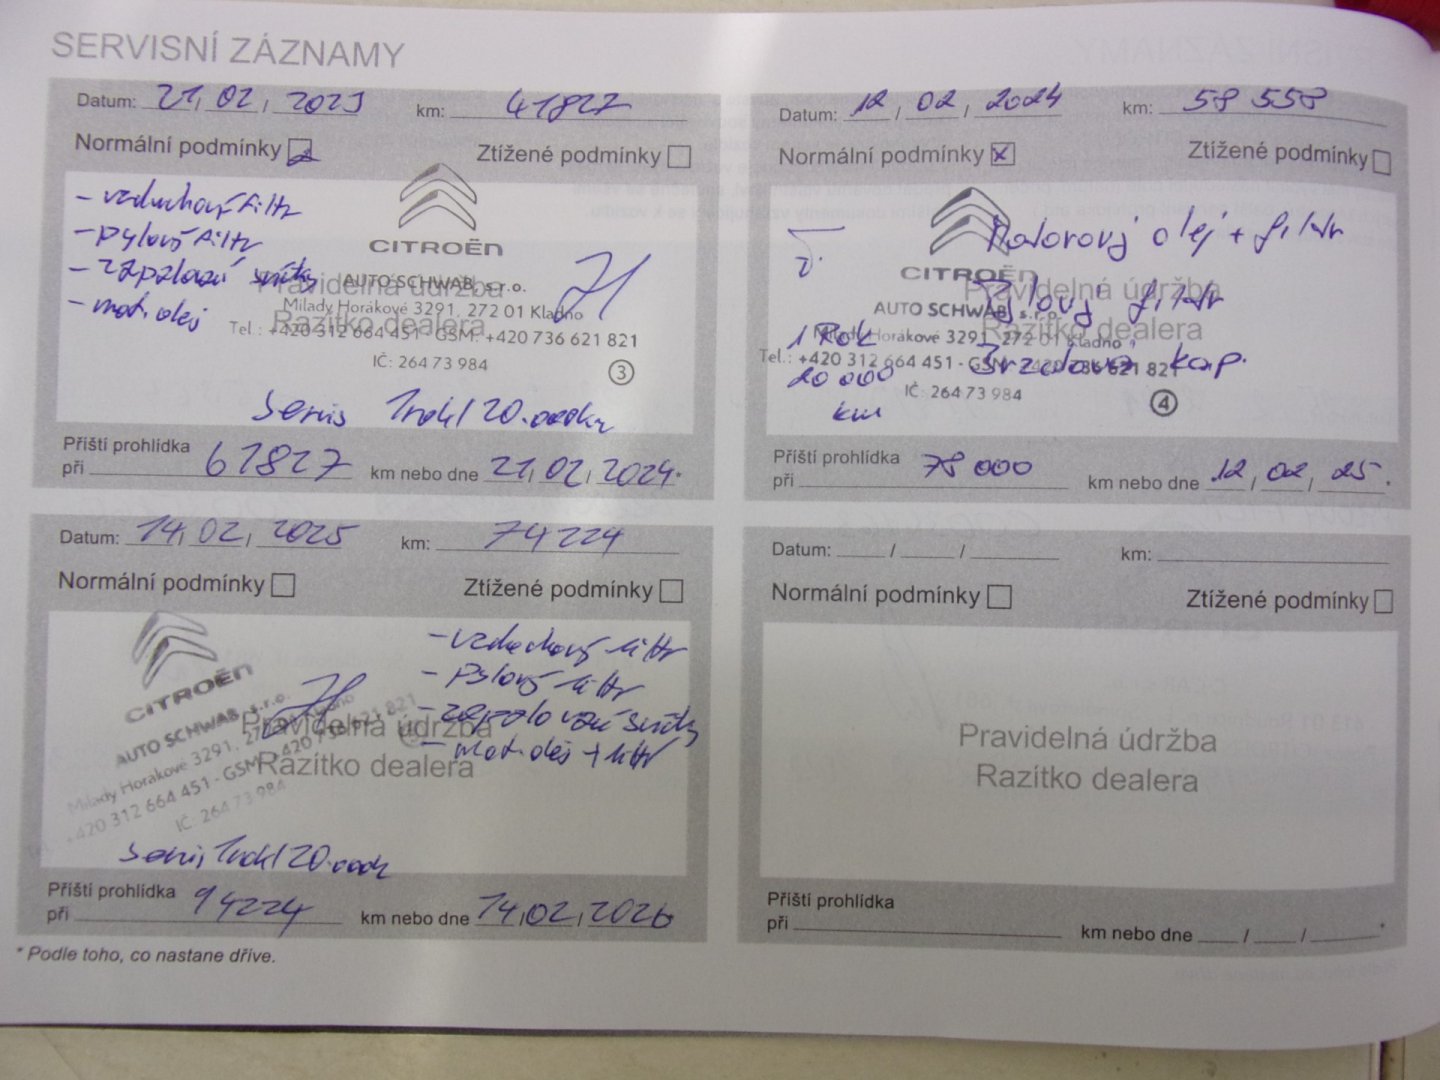 SERVISNÍ ZÁZNAMY
Datum: 21/ 02 / 2023 km: 41827
Normální podmínky Ztížené podmínky
- vzduchový filtr
- pylový filtr
- zapalovací svíčky
- mot. olej
CITROËN
AUTO SCHWAB, s.r.o.
Pravidelná údržba
Milady Horákové 3291, 272 01 Kladno
Razítko dealera
Tel.: +420 312 664 451 - GSM: +420 736 621 821
IČ: 264 73 984
3
Servis 1rok/20.000km
Příští prohlídka
při 61827 km nebo dne 21/ 02 / 2024.
Datum: 12 / 02 / 2024 km: 58 558
Normální podmínky x Ztížené podmínky
Motorový olej + filtr
CITROËN
Pravidelná údržba
AUTO SCHWAB, s.r.o.
Pylový filtr
Razítko dealera
1 Rok
Milady Horákové 3291, 272 01 Kladno
Brzdová kap.
Tel.: +420 312 664 451 - GSM: +420 736 621 821
20 000
km
IČ: 264 73 984
4
Příští prohlídka
při 78 000 km nebo dne 12 / 02 / 25.
Datum: 14/ 02 / 2025 km: 74224
Normální podmínky Ztížené podmínky
- vzduchový filtr
- pylový filtr
- zapalovací svíčky
- mot. olej + filtr
CITROËN
AUTO SCHWAB, s.r.o.
Pravidelná údržba
Milady Horákové 3291, 272 01 Kladno
Razítko dealera
+420 312 664 451 - GSM: +420 736 621 821
IČ: 264 73 984
Servis 1rok/20.000km
Příští prohlídka
při 94224 km nebo dne 14/ 02 / 2026
Datum: / / km:
Normální podmínky Ztížené podmínky
Pravidelná údržba
Razítko dealera
Příští prohlídka
při km nebo dne / / *
* Podle toho, co nastane dříve.